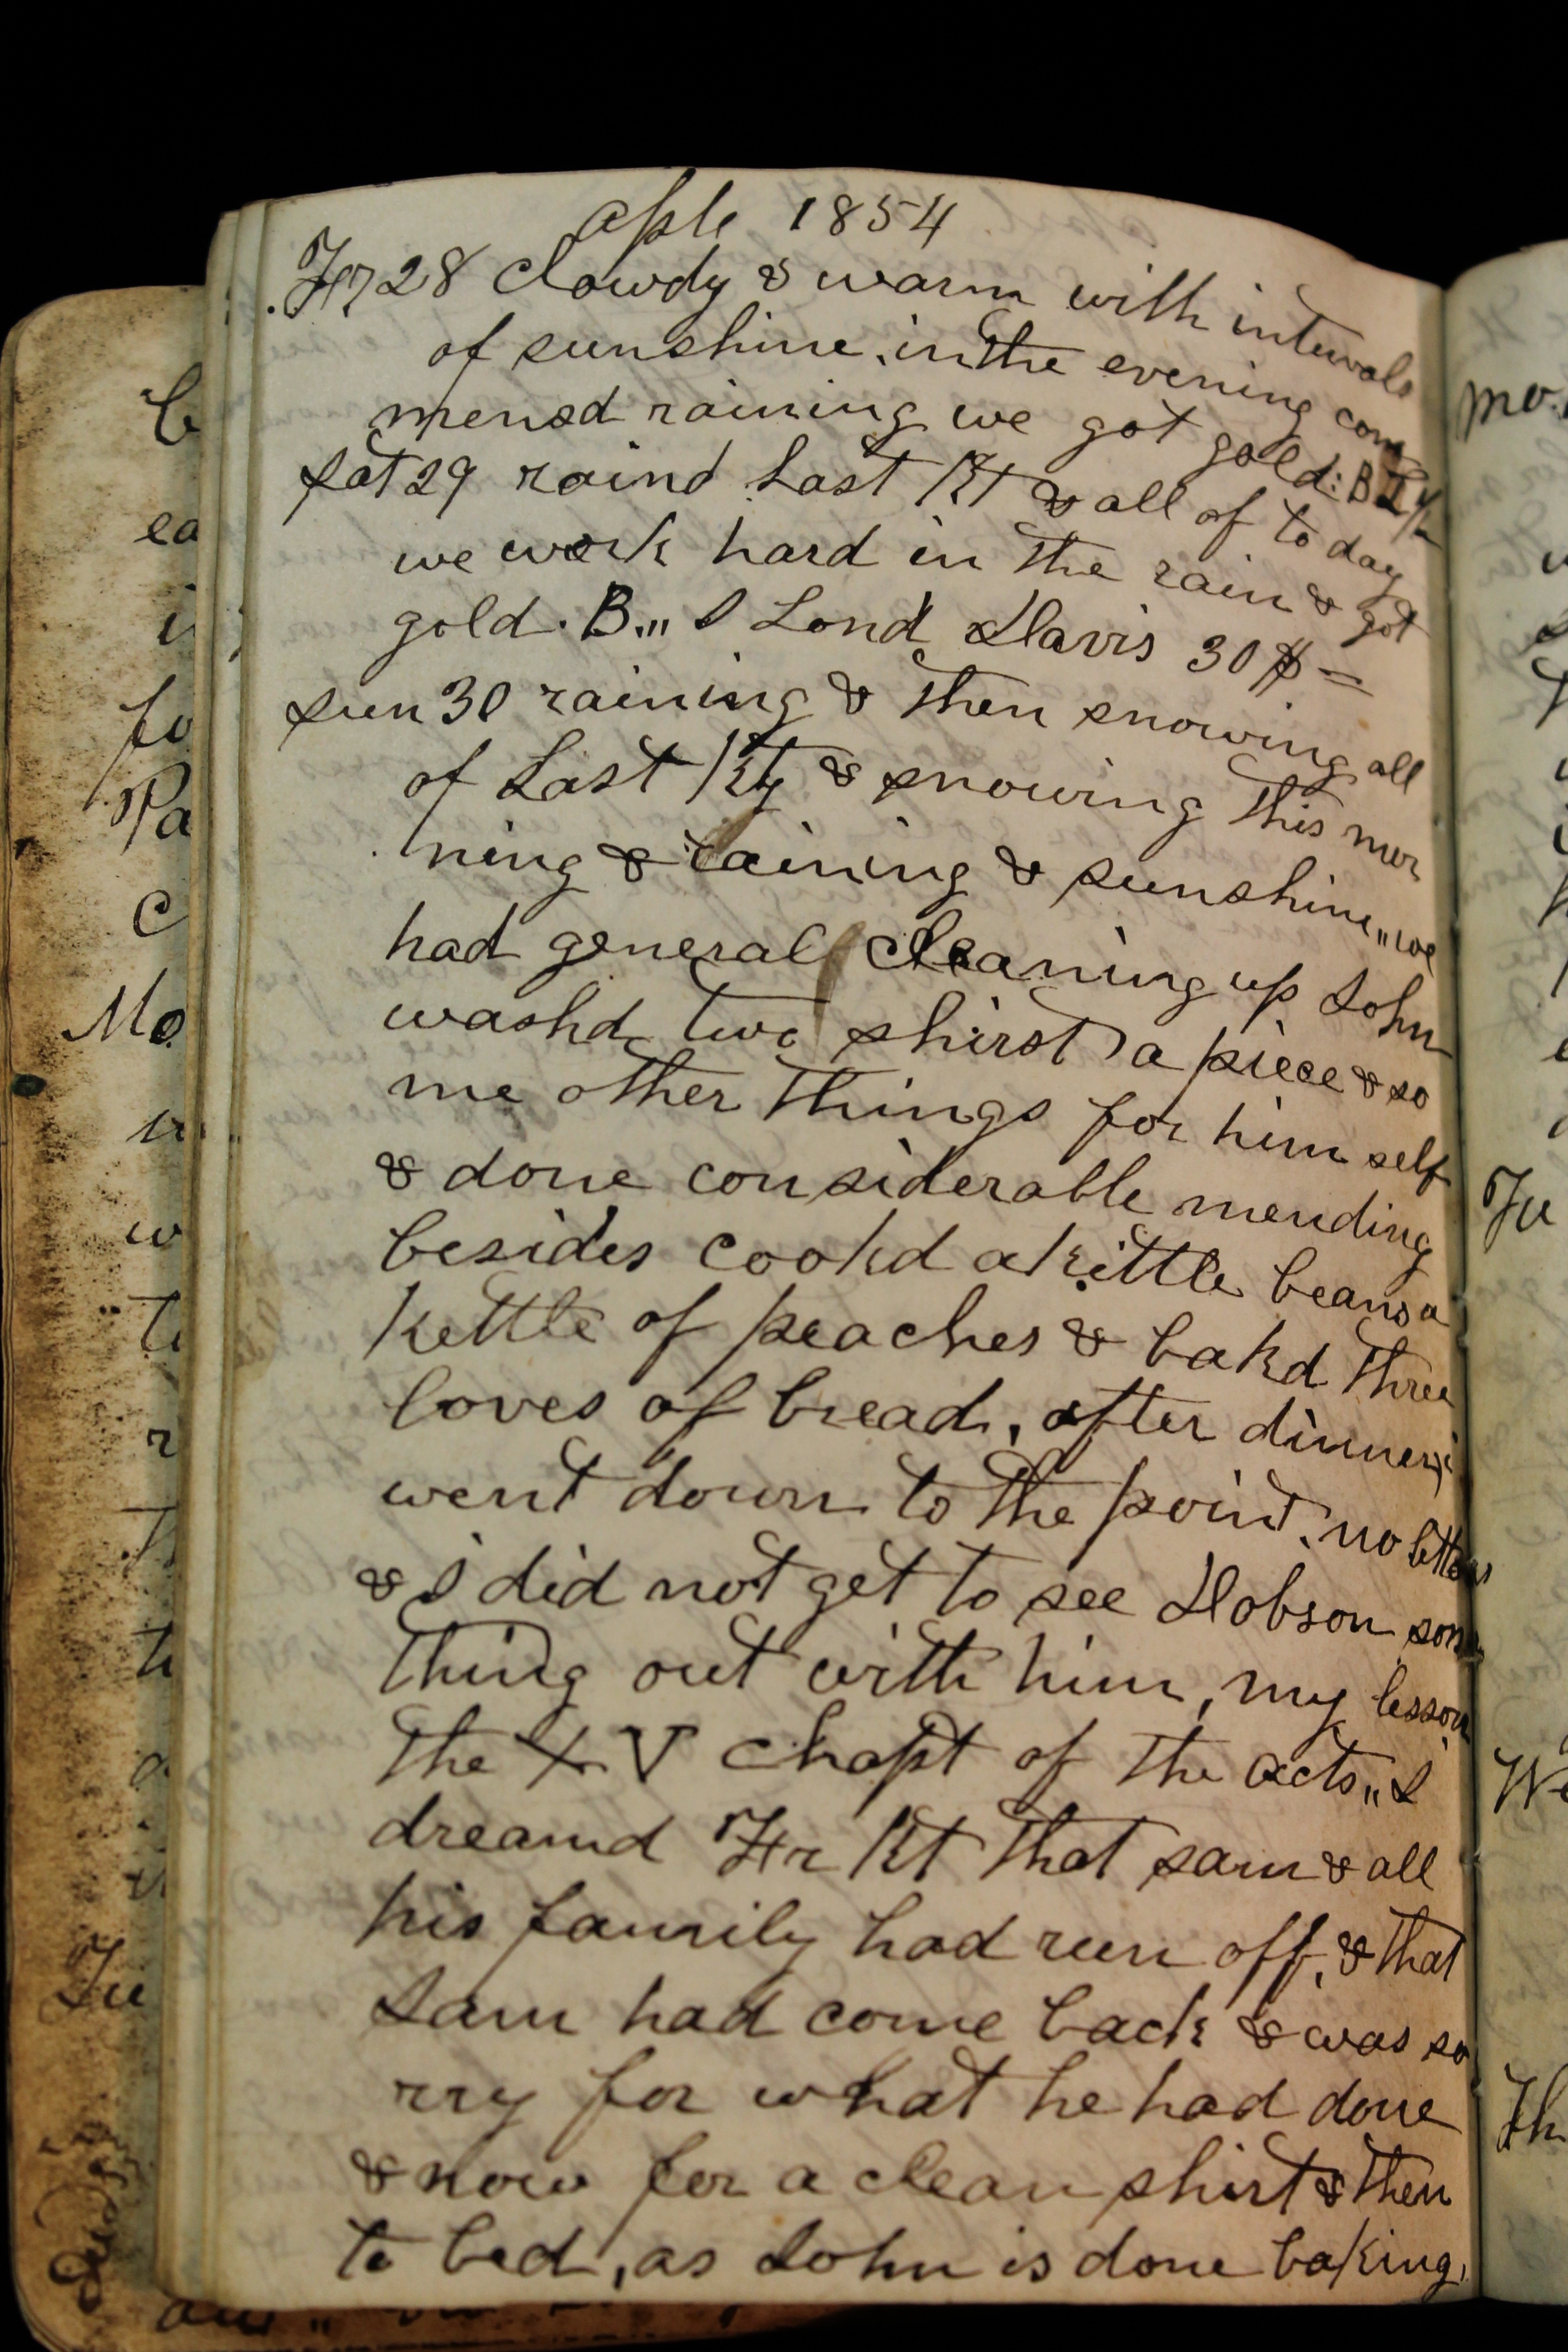 Aple 1854
Fr 28 Clowdy & warm with intervals
of sunshine. in the evening com
mensd raining we got gold: B
Sat 29 raind Last Nt & all of to day
we work hard in the rain & got
gold. B,,, I Lond Davis 30 $ =
Sun 30 raining & then snowing all
of Last Nt & snowing this mor
ning & raining & sunshine,, we
had general cleaning up John
washd two shirst a piece & so
me other things for him self
& done considerable mending
besides cookd a kittle beans a
kettle of peaches & bakd three
loves of bread, after dinner i
went down to the point. no letters
& I did not get to see Dobson som
thing out with him, my lesson
the XV Chapt of the acts,, I
dreamd Fr Nt that sam & all
his family had run off, & that
Sam had come back & was so
rry for what he had done
& now for a clean shirt & then
to bed, as John is done baking,